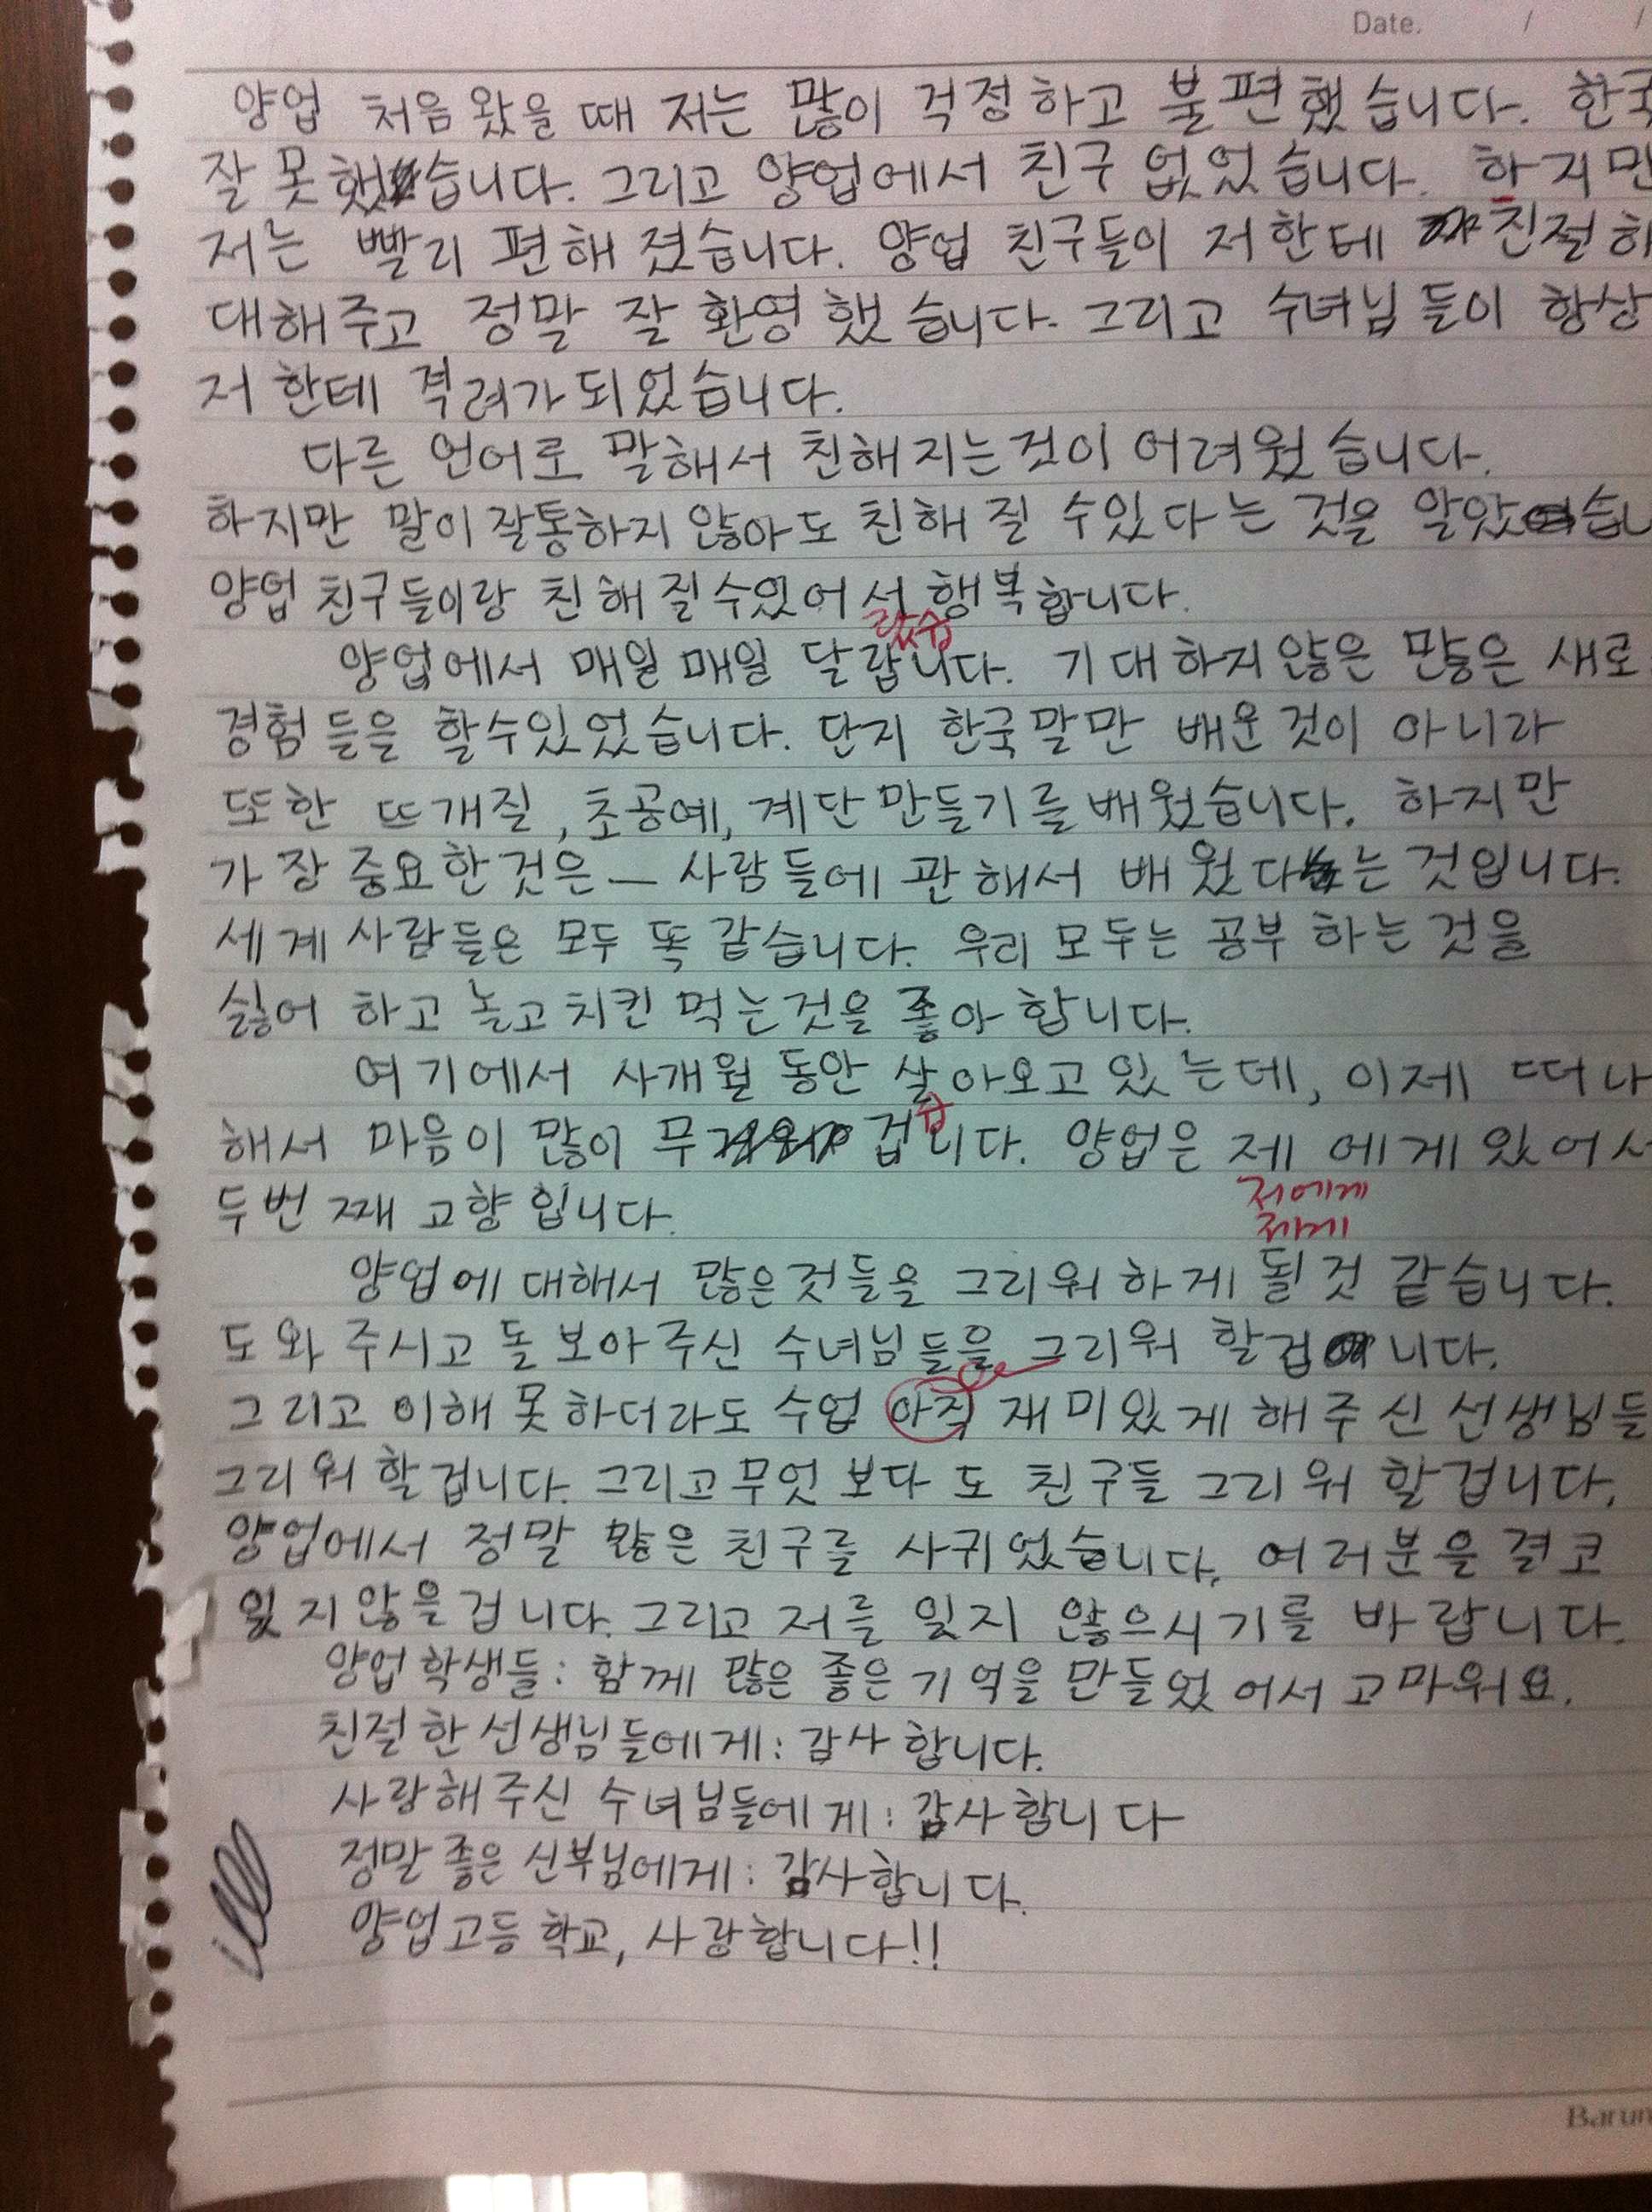 Date. / /
양업 처음 왔을 때 저는 많이 걱정하고 불편했습니다. 한국
잘 못 했습니다. 그리고 양업에서 친구 없었습니다. 하지만
저는 빨리 편해 졌습니다. 양업 친구들이 저한테 친절하
대해주고 정말 잘 환영했습니다. 그리고 수녀님들이 항상
저한테 격려가 되었습니다.
다른 언어로 말해서 친해지는것이 어려웠습니다.
하지만 말이 잘통하지 않아도 친해 질 수있다는 것을 알았습니
양업 친구들이랑 친해질수있어서 행복합니다.
랐습
양업에서 매일 매일 달랍니다. 기대하지않은 많은 새로
경험들을 할수있었습니다. 단지 한국말만 배운것이 아니라
또한 뜨개질, 초공예, 계단 만들기를 배웠습니다. 하지만
가장 중요한것은 — 사람들에 관해서 배웠다는 것입니다.
세계 사람들은 모두 똑 같습니다. 우리 모두는 공부하는 것을
싫어 하고 놀고 치킨 먹는것을 좋아합니다.
여기에서 사개월 동안 살아오고 있는데, 이제 떠나
습
해서 마음이 많이 무겁니다. 양업은 제에게 있어서
두번째 고향입니다.
저에게
제게
양업에 대해서 많은것들을 그리워하게 될것 같습니다.
도와 주시고 돌보아주신 수녀님들을 그리워 할겁니다.
그리고 이해 못하더라도 수업 아직 재미있게 해주신 선생님들
그리워 할겁니다. 그리고 무엇 보다 도 친구들 그리워 할겁니다.
양업에서 정말 많은 친구를 사귀었습니다. 여러분을 결코
잊지않을겁니다. 그리고 저를 잊지 않으시기를 바랍니다.
양업 학생들: 함께 많은 좋은 기억을 만들었어서 고마워요.
친절한 선생님들에게: 감사합니다.
사랑해주신 수녀님들에게: 감사합니다
정말 좋은 신부님에게: 감사합니다.
양업고등학교, 사랑합니다!!
Barun